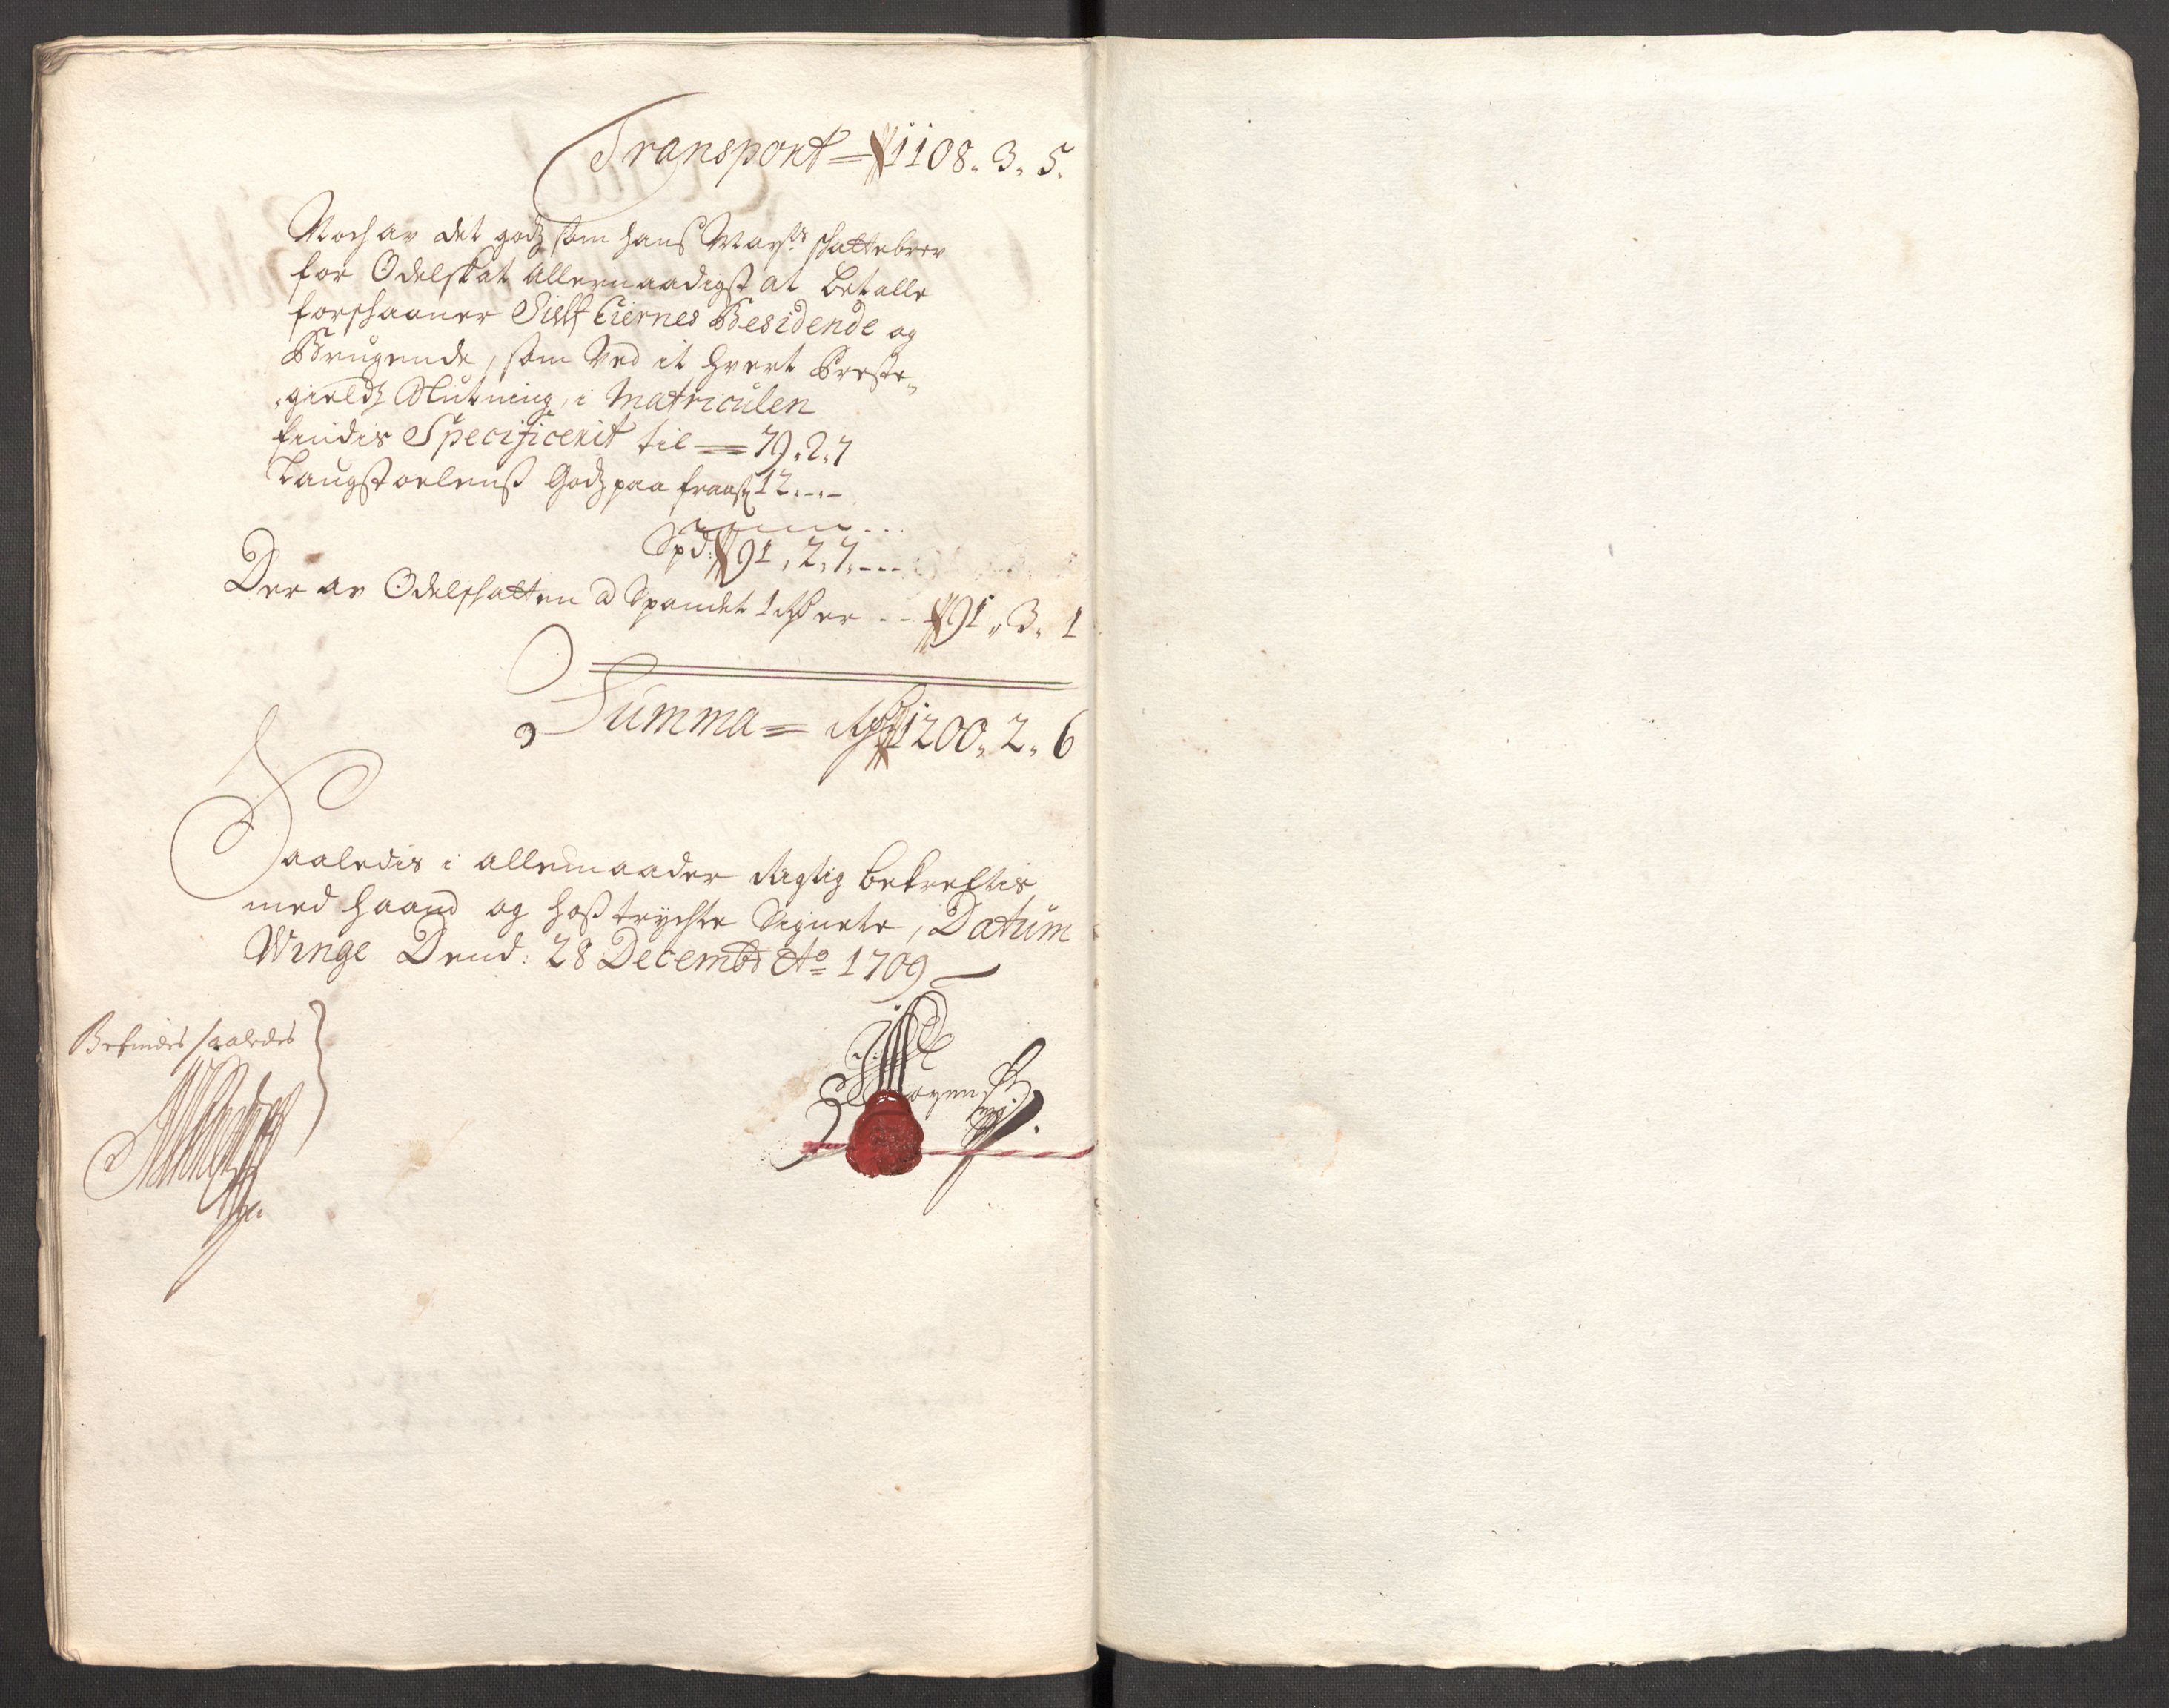 Transport = 1108. 3. 5.
Noch av det godz som hans Maysts schattebrev
for Odelskat allernaadigst at betalle
forschaaner Sielf Eiernes Besidende og
Brugende, som ved it hvert Preste-
gieldz Slutning, i Matriculen
findis Specificerit til = 79. 2. 7
Laugstoelens Godz paa 12. - -
Spd: 91. 2. 7. - - -
Der av Odelschatten a Spandet 1 Rd er - - 91. 3. 1
Summa = Rd 1200. 2. 6
Saaledis i allemaader Rigtig bekreftis
med haand og hostrychte Signete, Datum
Winge Dend: 28 Decembr Ao 1709
Befindes saaledes